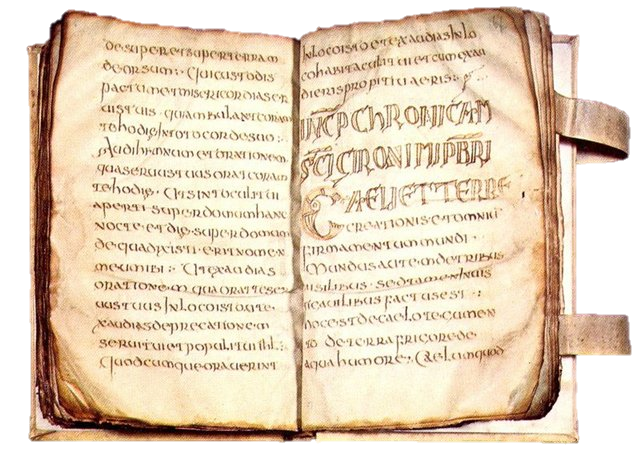 desuper et super terram
deorsum : Qui custodis
pactum et misericordias er
uis tuis · qui ambulant coram
te hodie in toto corde suo :
Audi hymnum et orationem
quas eruus tuus orat coram
te hodie · Ut sint oculi tui
aperti super domum hanc
nocte et die · super domum
de qua dixisti · erit nomen
meum ibi : Ut exaudias
orationem qua orat te ser
uus tuus in loco isto ut e
xaudias deprecationem
serui tui et populi tui ihl :
Quodcumque orauerint
In loco isto et exaudias in lo
co habitaculi tui et cum exau
dieris propitius eris :
INCP CHRONICAM
SCI HIRONIMI PBRI
CAELI ET TERRE
CREATIONIS ET OMNIU
FIRMAMENTUM MUNDI ·
Mundus autem de tribus
uisilibus · sed tamen
factus est :
hoc est de caelo
to de terra frigore de
aqua humore : Caelum quod